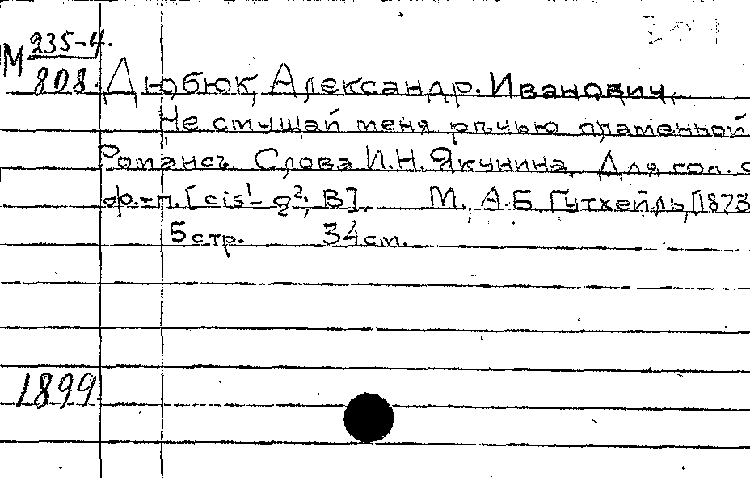 М 235-4
808
Дюбюк, Александр Иванович.
Не смущай меня речью пламенной
Романсъ. Слова И.Н. Якунина. Для гол. с
ф.-п. [cis¹-g², В]. М., А.Б. Гутхейль, [1873
5 стр. 34 см.
1899